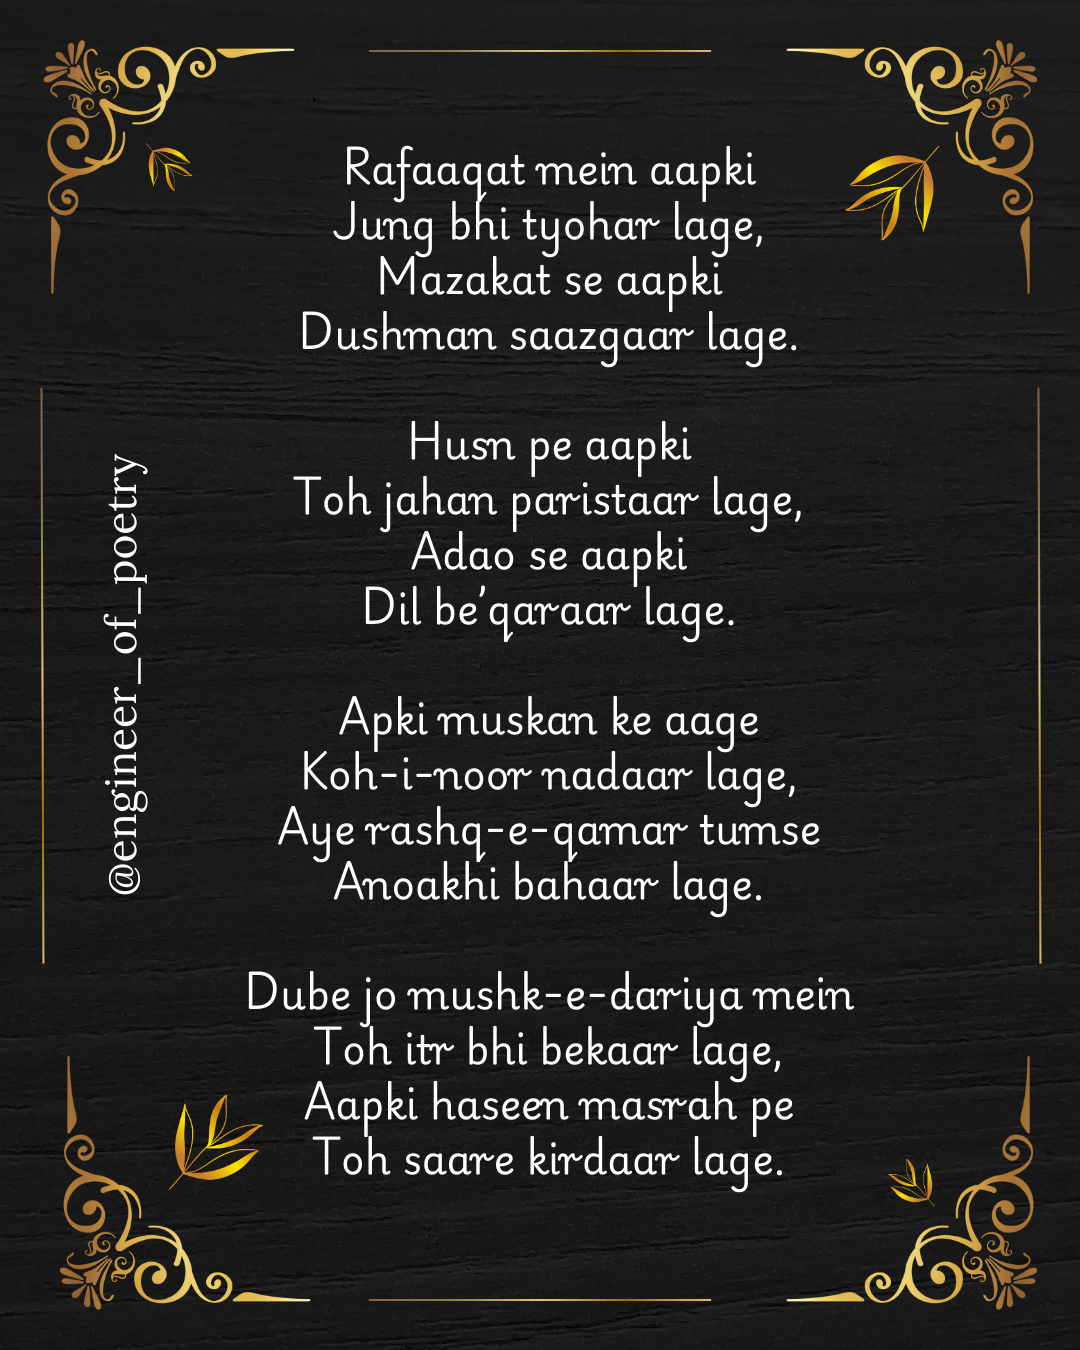 Rafaaqat mein aapki
Jung bhi tyohar lage,
Mazakat se aapki
Dushman saazgaar lage.
Husn pe aapki
Toh jahan paristaar lage,
Adao se aapki
Dil be’qaraar lage.
Apki muskan ke aage
Koh-i-noor nadaar lage,
Aye rashq-e-qamar tumse
Anoakhi bahaar lage.
Dube jo mushk-e-dariya mein
Toh itr bhi bekaar lage,
Aapki haseen masrah pe
Toh saare kirdaar lage.
@engineer_of_poetry